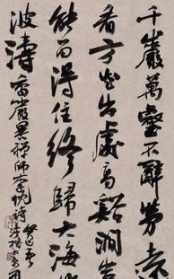 千巖萬壑不辭勞遠
看方知出處高谿澗豈
能留得住終歸大海作
波濤 香嚴禪師